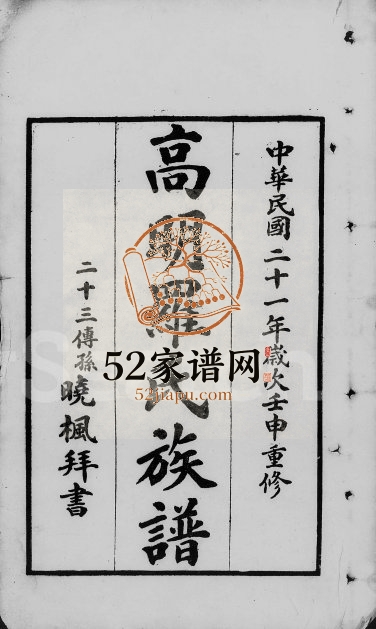 中華民國二十一年歲次壬申重修
高明羅氏族譜
二十三傳孫曉楓拜書
52家谱网
52jiapu.com